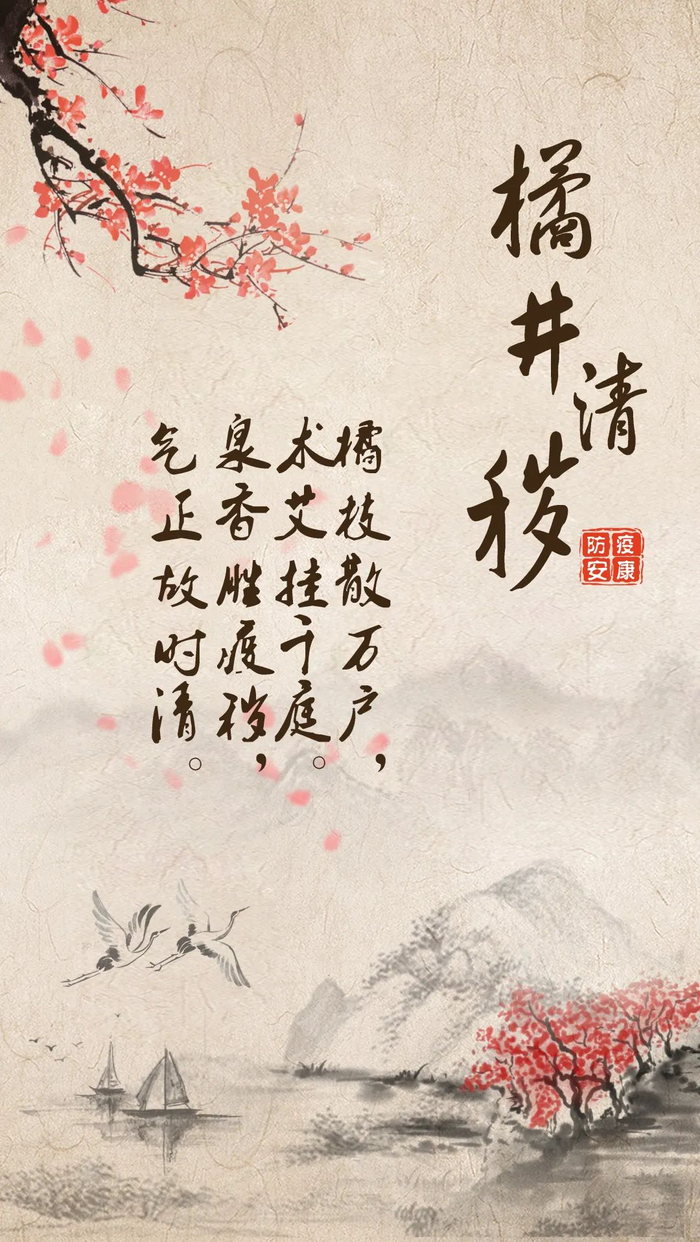 橘井清秽
防疫
安康
橘枝散万户，
术艾挂千庭。
泉香胜疫秽，
气正故时清。